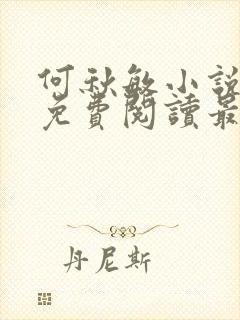 何秋敏小說
免費閱讀最
丹尼斯